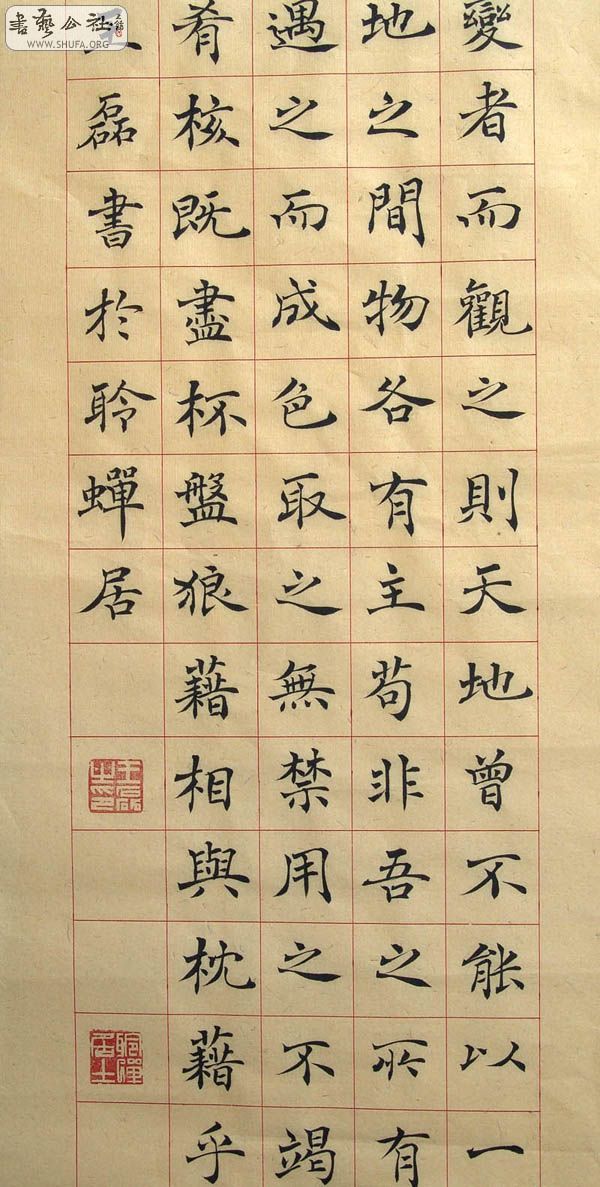 書藝公社
WWW.SHUFA.ORG
變者而觀之則天地曾不能以一
地之間物各有主苟非吾之所有
遇之而成色取之無禁用之不竭
肴核既盡杯盤狼藉相與枕藉乎
磊書於聆蟬居
王磊之印
聆蟬居士